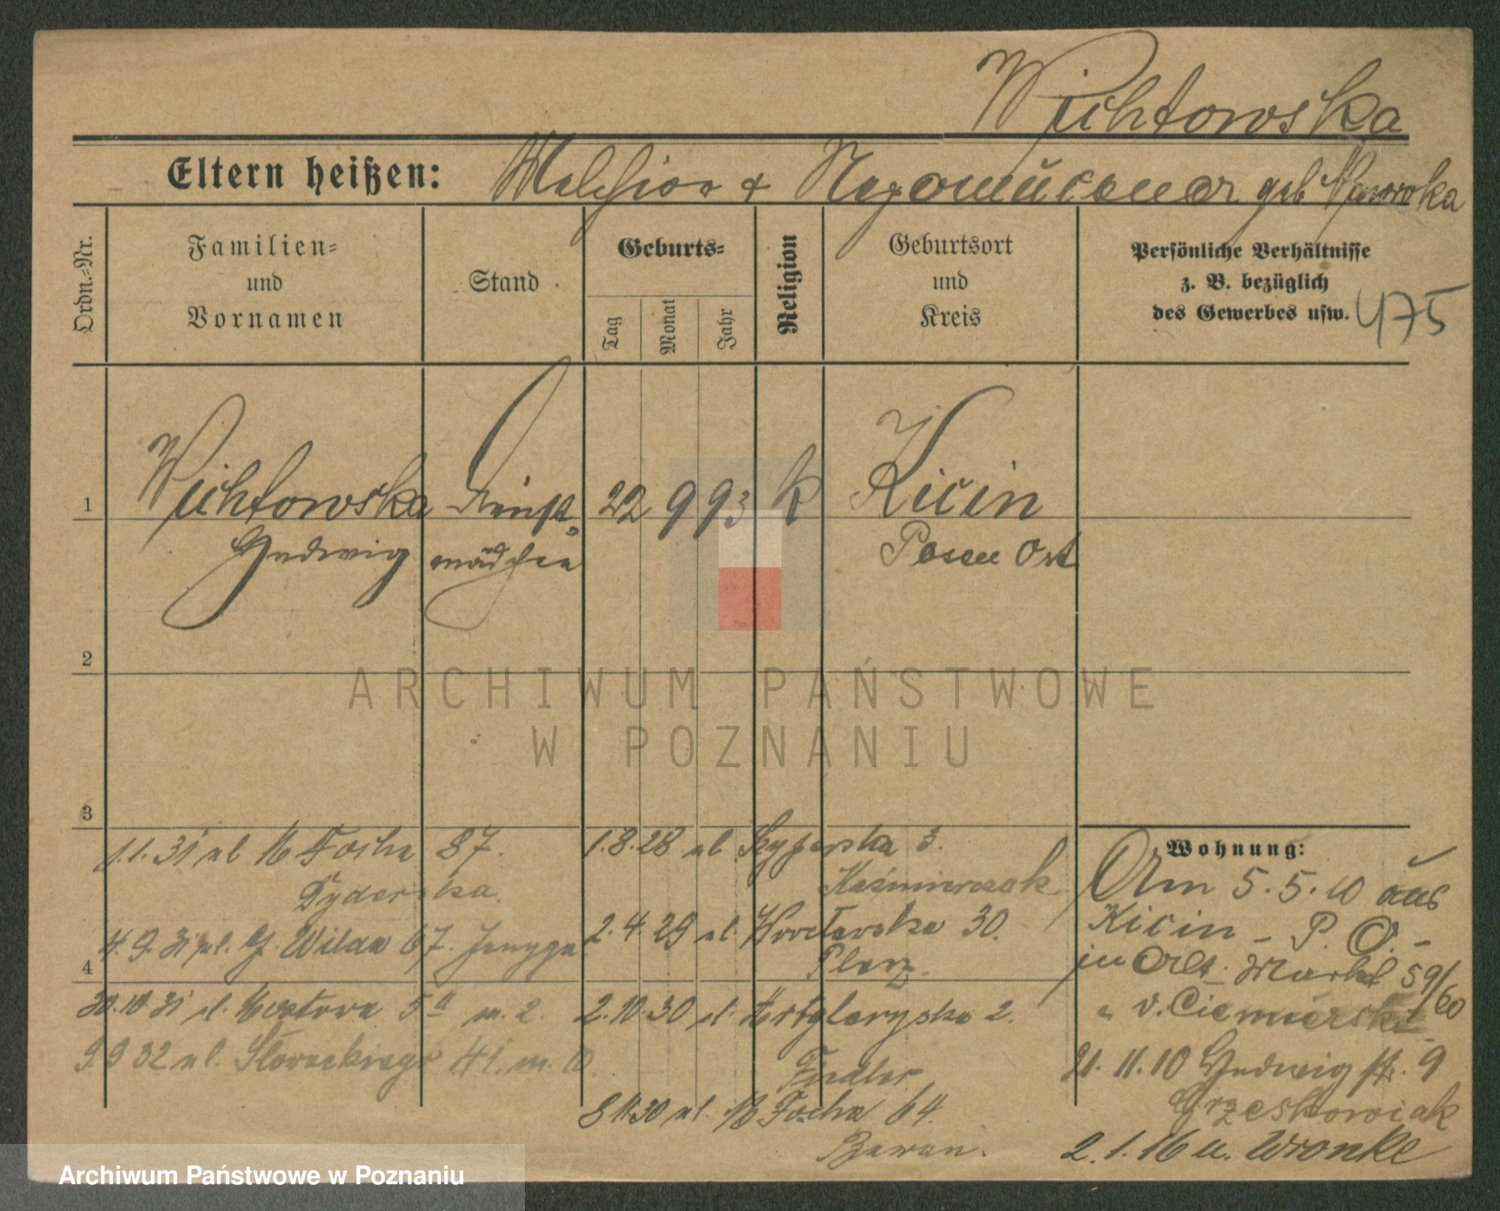 Wichtowska
Eltern heißen: Melchior + geb
Ordn.=Nr.
Familien=
und
Vornamen
Stand
Geburts=
Tag
Monat
Jahr
Religion
Geburtsort
und
Kreis
Persönliche Verhältnisse
z. B. bezüglich
des Gewerbes usw.
475
1
Wichtowska Dienst= 22 9 93 k Kicin
Hedwig mädchen Posen Ost
2
3
1.1.31 ul Focha 87.
4
4.9.31 ul. Wilda 67.
30.10.31 ul. 5a m. 2.
9.9.32 ul. Słowackiego 41. m. 10.
1.8.28 ul. 3.
Kaźmierczak
2.4.29 ul. 30.
2.10.30 ul. Artyleryska 2.
Fiedler
8.11.30 ul. Focha 64.
Baran.
Wohnung:
Am 5.5.10 aus
Kicin - P. O. -
in Alt. Markt 59/60
" v. Ciemierski
21.11.10 Hedwig str. 9
Grzeskowiak
2.1.16 n. Wronke
ARCHIWUM PAŃSTWOWE
W POZNANIU
Archiwum Państwowe w Poznaniu